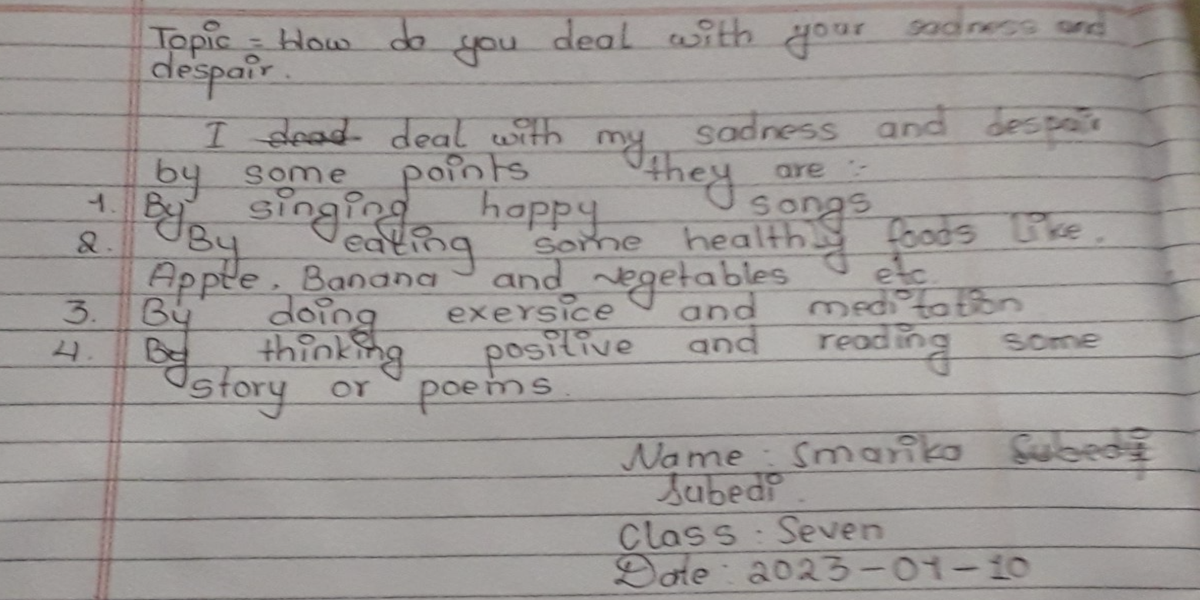 Topic = How do you deal with your sadness and
despair.
I dead deal with my sadness and despair
by some points they are :-
1. By singing happy songs
2. By eating some healthy foods like.
Apple, Banana and vegetables etc
3. By doing exersice and meditation
4. By thinking positive and reading some
story or poems.
Name : Smarika Subedi
Subedi.
Class : Seven
Date : 2023-01-10